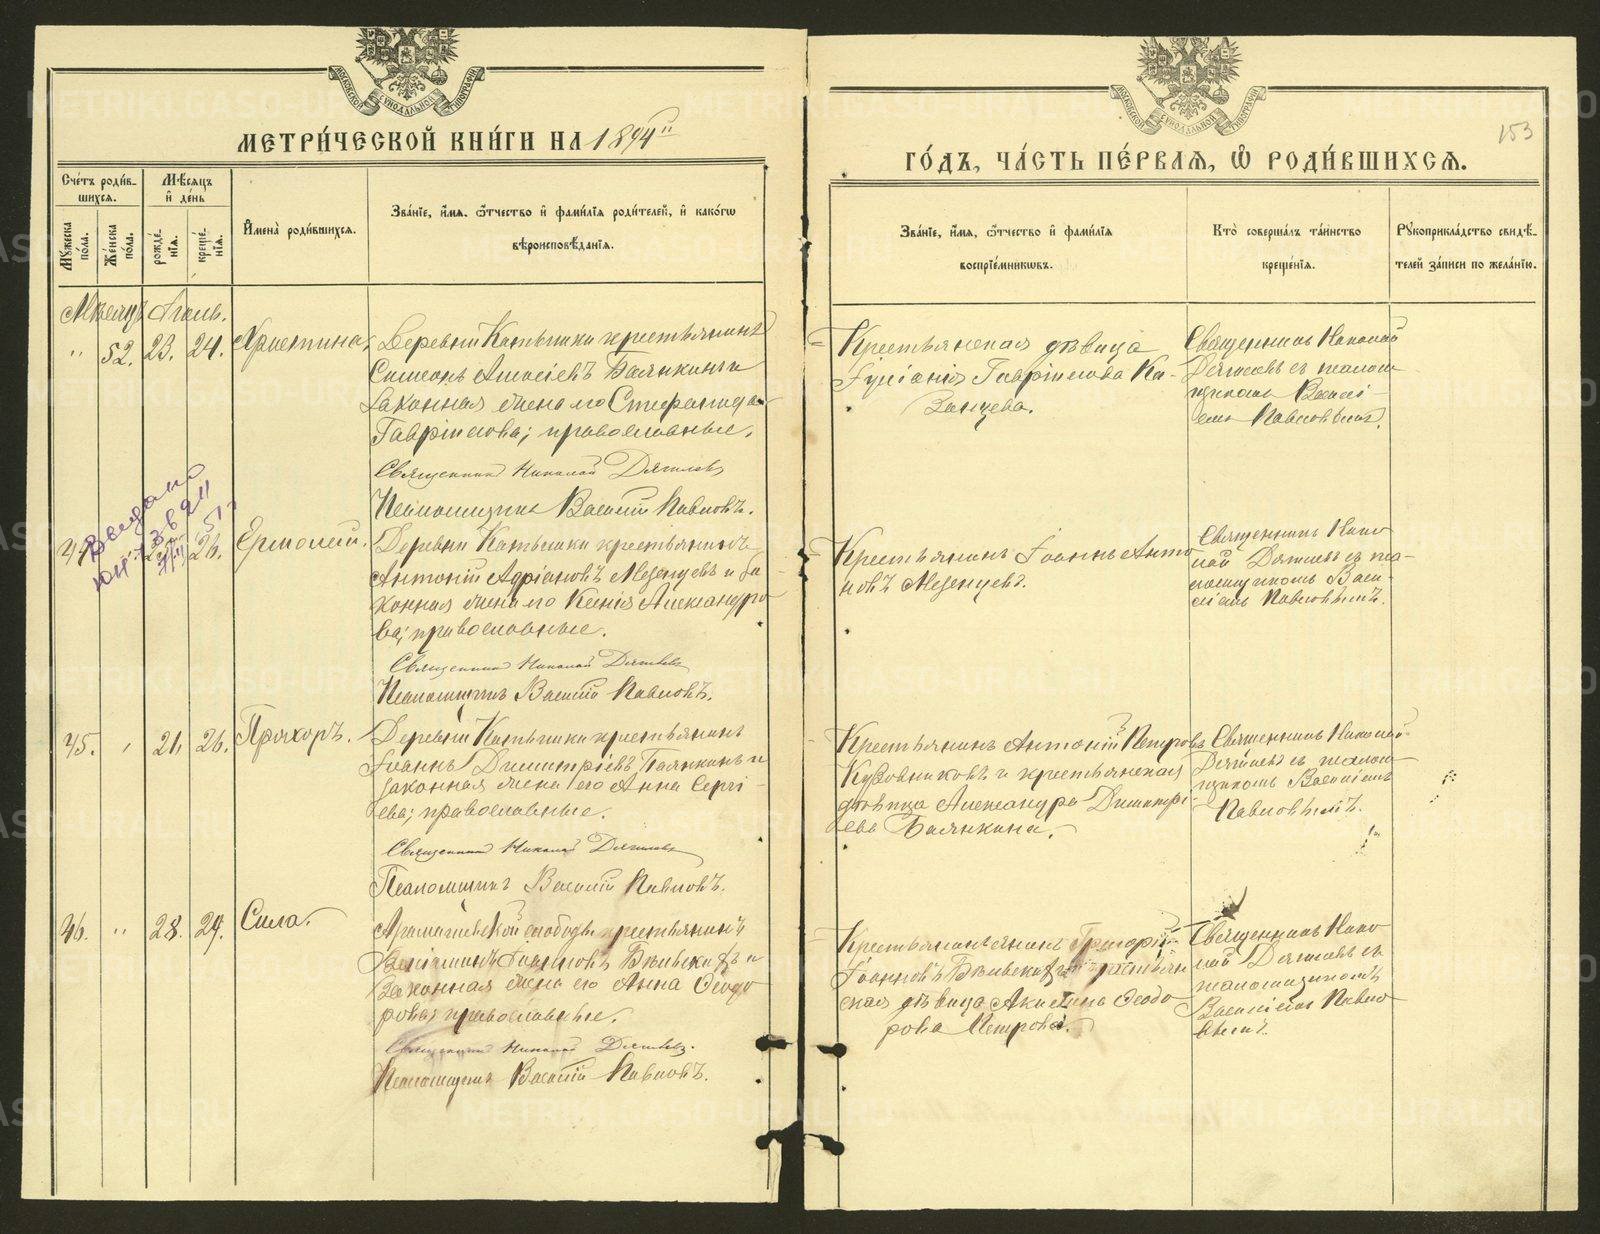 МЕТРИ́ЧЕСКОЙ КНИ́ГИ НА 1894
ГО́ДЪ, ЧА́СТЬ ПЕ́РВАЯ, Ѽ РОДИ́ВШИХСЯ.
153
МОСКОВСКОЙ СѴНОДАЛЬНОЙ ТИПОГРАФІИ
МОСКОВСКОЙ СѴНОДАЛЬНОЙ ТИПОГРАФІИ
Сче́тъ роди́в-
шихся.
Мѣ́сяцъ
и҆ де́нь
Мꙋ́жеска
по́ла.
Же́нска
по́ла.
рожде́-
нія.
креще́-
нія.
И҆мена̀ роди́вшихся.
Зва́ніе, и҆́мя, ѻ҆́тчество и҆ фами́лія роди́телей, и҆ како́гѡ
вѣроисповѣ́данія.
Зва́ніе, и҆́мя, ѻ҆́тчество и҆ фами́лія
воспріе́мникѡвъ.
Кто̀ соверша́лъ та́инство
креще́нія.
Рꙋкоприкла́дство свидѣ́-
телей за́писи по жела́нію.
Мѣсяцъ Іюль.
" 52. 23. 24. Христина,
Деревни Катышки крестьянинъ
Симеонъ Алексіевъ Балякинъ и
законная жена его Стефанида
Гавріилова; православные.
Священникъ Николай Дягилевъ
Псаломщикъ Василій Павловъ.
Крестьянская дѣвица
Іуліанія Гавріилова Ка-
занцева.
Священникъ Николай
Дягилевъ съ псалом-
щикомъ Василі-
емъ Павловымъ.
Выдано
26. Ермолай.
Деревни Катышки крестьянинъ
Антоній Адріановъ Мезенцевъ и за-
конная жена его Ксенія Александро-
ва; православные.
Священникъ Николай Дягилевъ
Псаломщикъ Василій Павловъ.
Крестьянинъ Іоаннъ Анто-
новъ Мезенцевъ.
Священникъ Нико-
лай Дягилевъ съ пса-
ломщикомъ Васи-
ліемъ Павловымъ.
45. " 21. 26. Прохоръ.
Деревни Катышки крестьянинъ
Іоаннъ Димитріевъ Балякинъ и
законная жена его Анна Сергі-
ева; православные.
Священникъ Николай Дягилевъ
Псаломщикъ Василій Павловъ.
Крестьянинъ Антоній Петровъ
Кузовниковъ и крестьянская
дѣвица Александра Димитрі-
ева Балякина.
Священникъ Николай
Дягилевъ съ псалом-
щикомъ Василіемъ
Павловымъ.
46. " 28. 29. Сила.
слободы крестьянинъ
Веніаминъ Іоанновъ и
законная жена его Анна Ѳеодо-
рова; православные.
Священникъ Николай Дягилевъ.
Псаломщикъ Василій Павловъ.
Григорій
Іоанновъ и крестьян-
ская дѣвица Акилина Ѳеодо-
рова Петрова.
Священникъ Нико-
лай Дягилевъ съ
псаломщикомъ
Василіемъ Павло-
вымъ.
METRIKI.GASO-URAL.RU